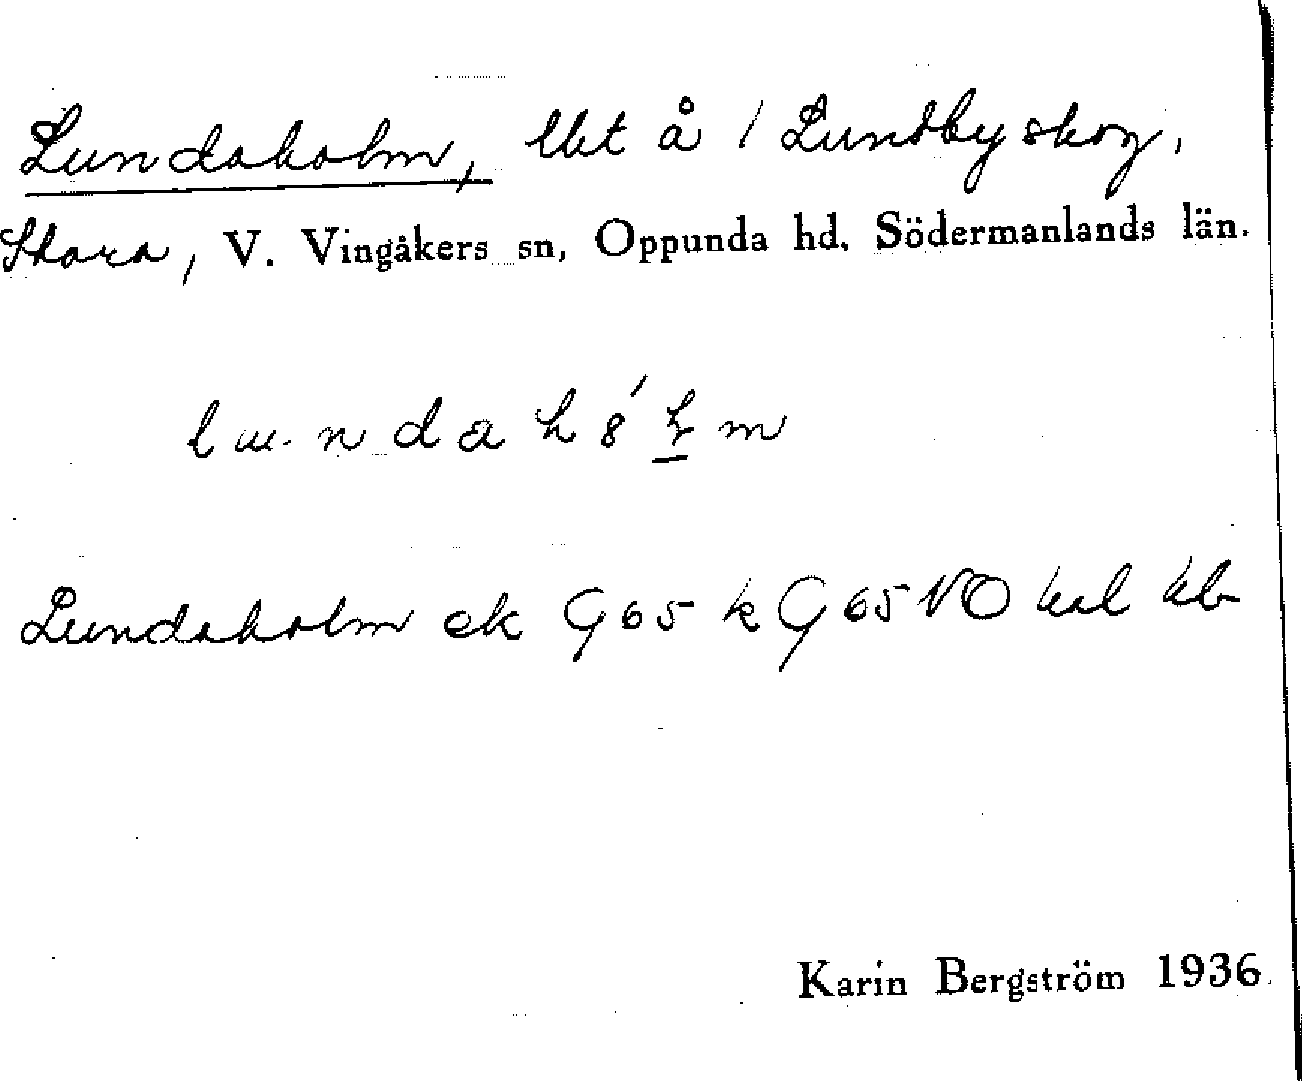 Lundaholm, lht å 1 Lundby skog,
Stora, V. Vingåkers sn, Oppunda hd. Södermanlands län.
Lundaholm ek G65 k G65 NO
Karin Bergström 1936